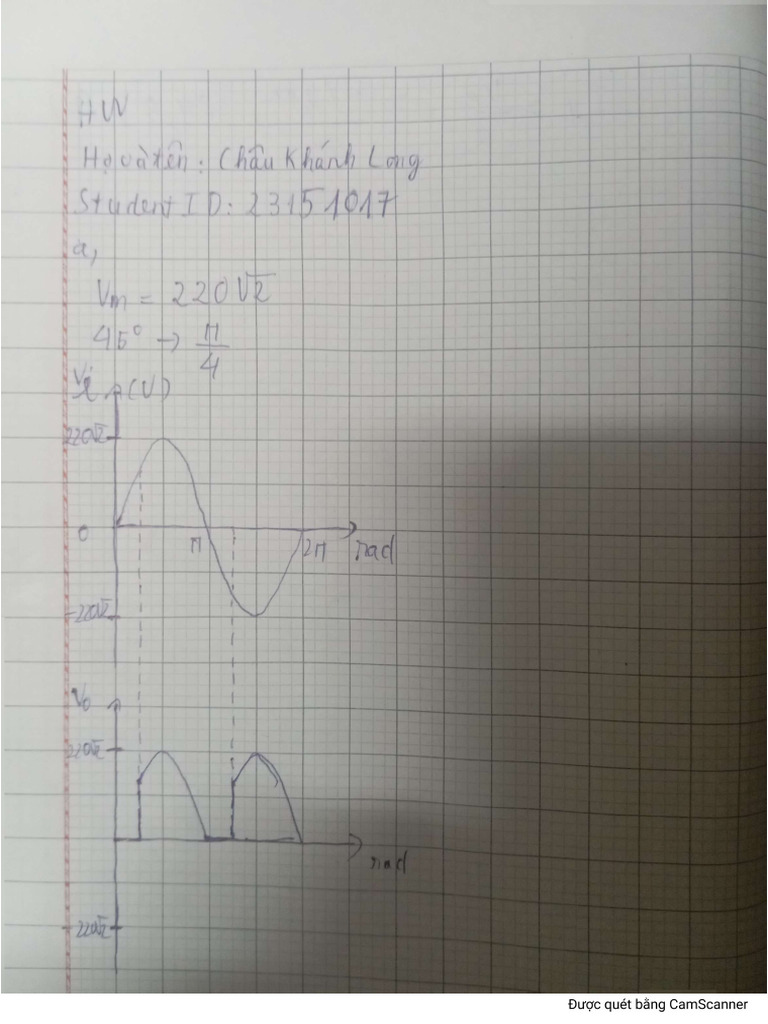 HW
Họ và tên: Châu Khánh Long
Student ID: 23151017
a,
Vm = 220√2
45° → π/4
Vi (V)
220√2
0
π
2π
rad
-220√2
Vo
220√2
rad
-220√2
Được quét bằng CamScanner